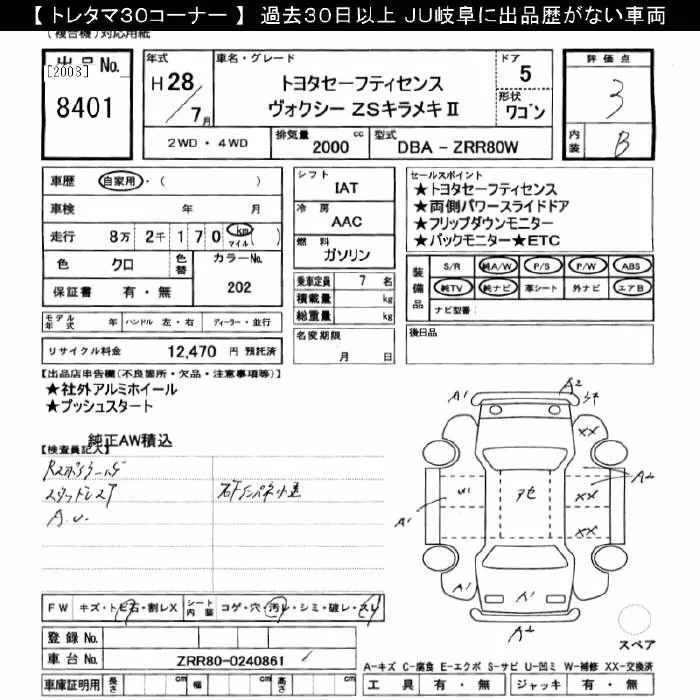 【 トレタマ３０コーナー 】 過去３０日以上 ＪＵ岐阜に出品歴がない車両
(複合機)対応用紙
出品No.
[2003]
8401
年式
H28/7月
車名・グレード
トヨタセーフティセンス
ヴォクシー ZSキラメキⅡ
ドア
5
形状
ワゴン
2WD・4WD
排気量 2000 cc
型式 DBA - ZRR80W
評価点
3
内装 B
車歴 自家用・( )
車検 年 月
走行 8万 2千 1 7 0 km マイル ( )
色 クロ 色替 カラーNo. 202
保証書 有・無
モデル年式 年 ハンドル 左・右 ディーラー・並行
リサイクル料金 12,470 円 預託済
シフト IAT
冷房 AAC
燃料 ガソリン
乗車定員 7 名
積載量 kg
総重量 kg
名変期限 月 日
セールスポイント
★トヨタセーフティセンス
★両側パワースライドドア
★フリップダウンモニター
★バックモニター★ETC
装備品
S/R 純A/W P/S P/W ABS
純TV 純ナビ 革シート 外ナビ エアB
ナビ型番：
後日品
【出品店申告欄(不良箇所・欠品・注意事項等)】
★社外アルミホイール
★プッシュスタート
純正AW積込
【検査員記入】
A.U.
FW キズ・トビ石・割レX シート内装 コゲ・穴・汚レ・シミ・破レ・スレ
登録No.
車台No. ZRR80-0240861
車庫証明用 長さ cm 幅 cm 高さ cm
A1
A2
XX
A2
XX
XX
A1
U1
アセ
A1
A2
スペア
A-キズ C-腐食 E-エクボ S-サビ U-凹ミ W-補修 XX-交換済
工具 有・無 ジャッキ 有・無